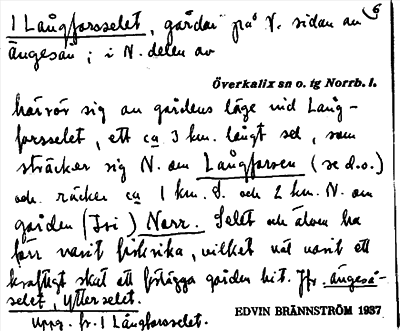 6
1 Långforsselet, gårdar på V. sidan av
Ängesån; i N. delen av
Överkalix sn o. tg Norrb. l.
härrör sig av gårdens läge vid Lång-
forsselet, ett ca 3 km. långt sel, som
sträcker sig N. om Långforsen (se d.o.)
och räcker ca 1 km. S. och 2 km. N. om
gården (Isi) Norr. Selet och älven ha
förr varit fiskrika, vilket väl varit ett
kraftigt skäl att förlägga gården hit. Jfr. Ängeså-
selet, Ytterselet.
Uppg. fr. 1 Långforsselet.
EDVIN BRÄNNSTRÖM 1937